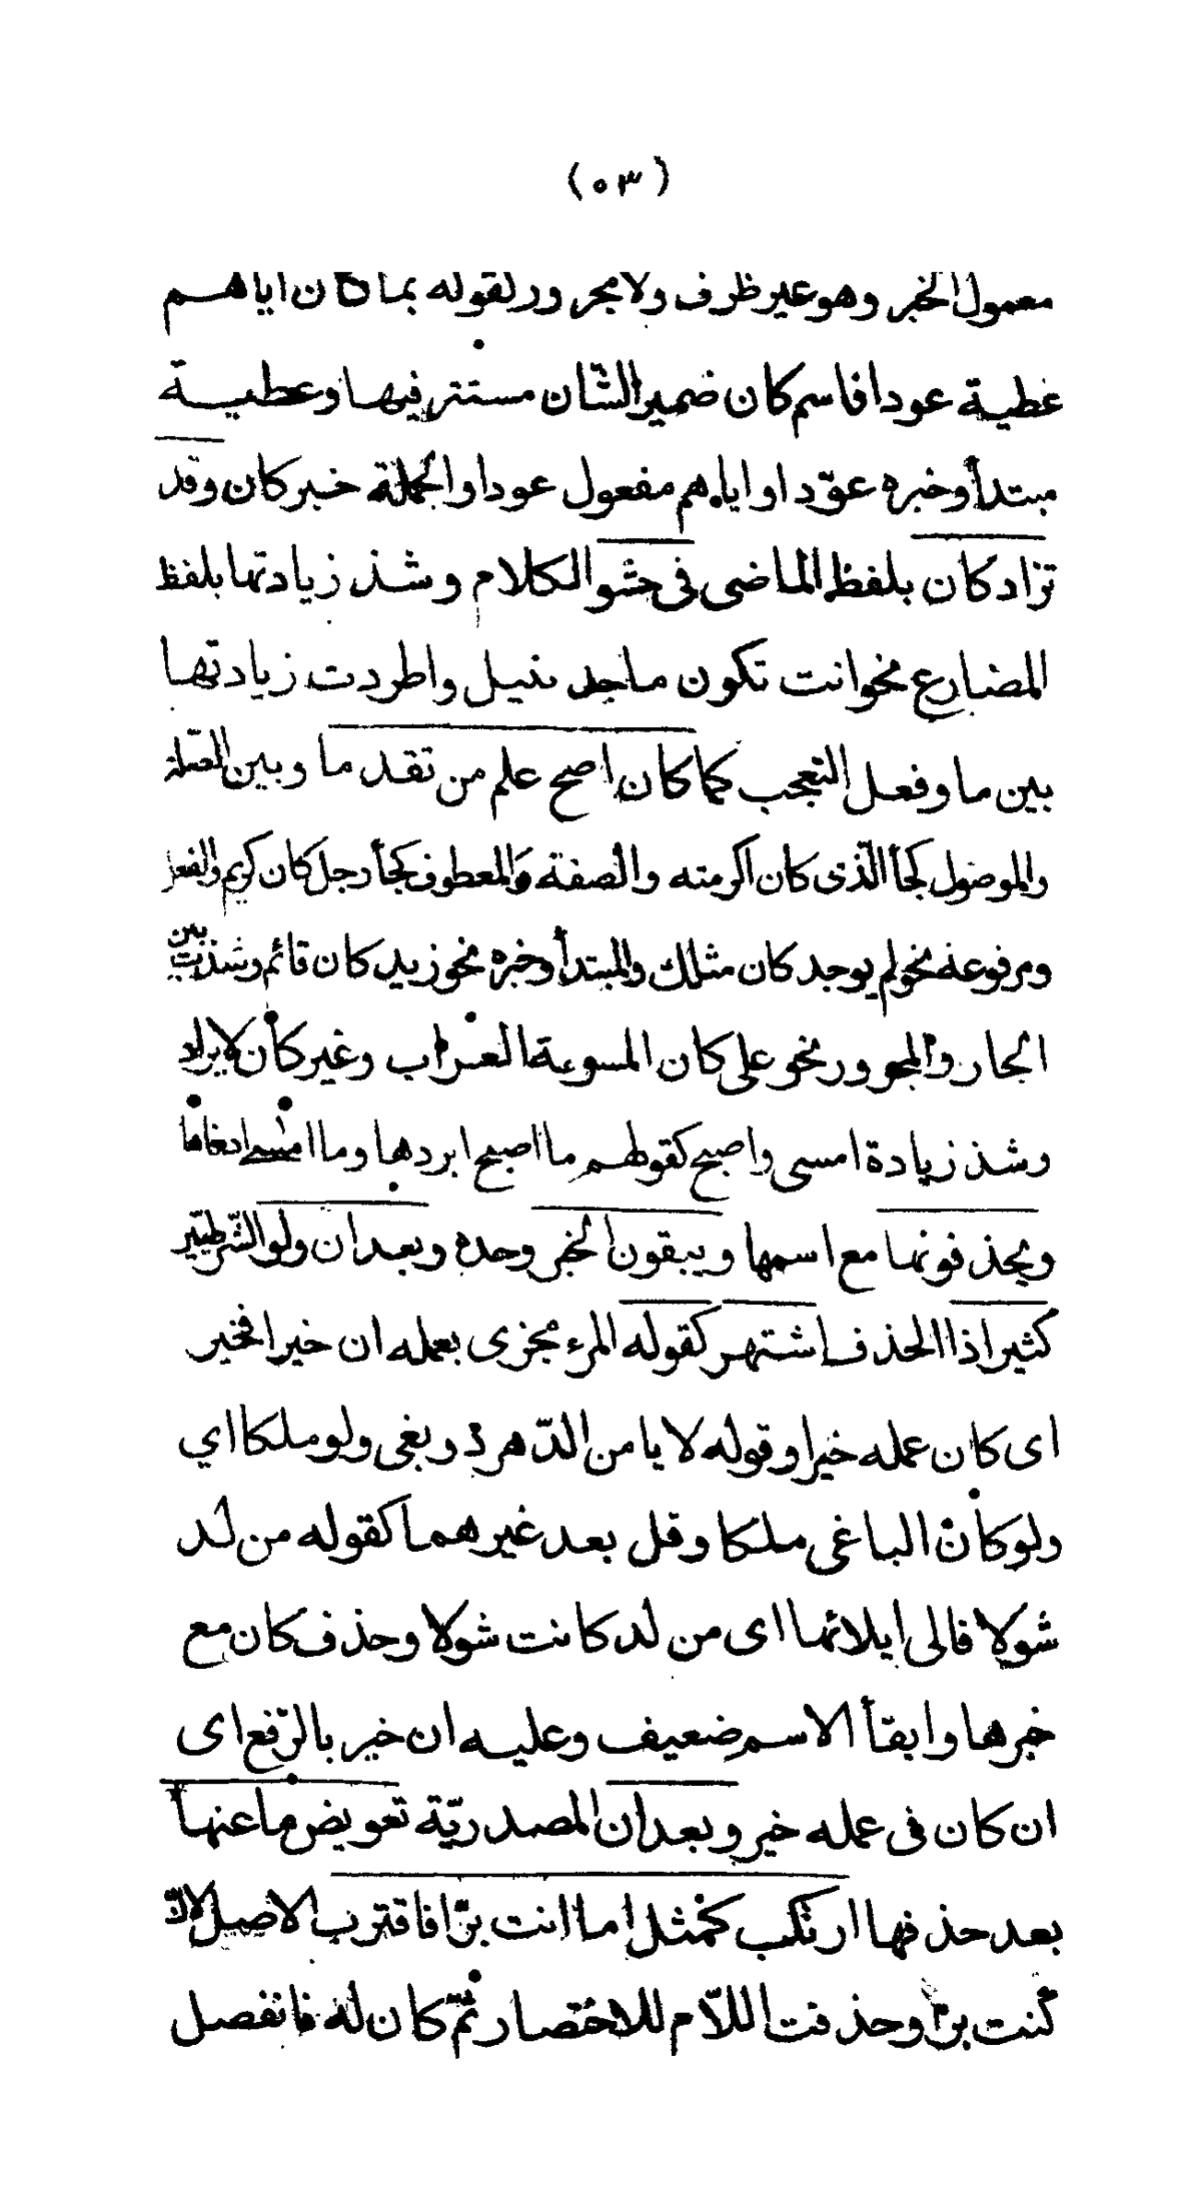 (٥٣)
معمول الخبر وهو غير ظرف ولا مجرور لقوله بما كان اياهم
عطية عودا فاسم كان ضمير الشّان مستتر فيها وعطية
مبتدأ وخبره عوّد اواياهم مفعول عودا والجملة خبر كان وقد
تزاد كان بلفظ الماضى فى حشو الكلام وشذ زيادتها بلفظ
المضارع نحو انت تكون ماجد نبيل واطردت زيادتها
بين ما وفعل التعجب كما كان اصح علم من تقدما وبين الصلة
والموصول كجأ الّذى كان اكرمته والصفة والمعطوف كجأ رجل كان كريم والفعل
ومرفوعه نحو لم يوجد كان مثلك والمبتدأ وخبره نحو زيد كان قائم وشذت بين
الجار والمجرور نحو على كان المسومة العراب وغير كان لا يراد
وشذ زيادة امسى واصبح كقولهم ما اصبح ابردها وما امسى ادفاها
ويحذفونها مع اسمها ويبقون الخبر وحده وبعد ان ولو الشّرطيّتين
كثيرا ذا الحذف اشتهر كقوله المرء مجزى بعمله ان خيرا فخير
اى كان عمله خيرا وقوله لا يامن الدّهر ذو بغى ولو ملكا اي
ولو كان الباغى ملكا وقل بعد غيرهما كقوله من لد
شولا فالى ايلائها اى من لد كانت شولا وحذف كان مع
خبرها وابقأ الاسم ضعيف وعليه ان خير بالرّفع اى
ان كان فى عمله خير وبعد ان المصدريّة تعويض ما عنها
بعد حذفها ارتكب كمثل اما انت برّا فاقترب الاصل لانّ
كنت برّا وحذفت اللّام للاختصار ثمّ كان له فانفصل